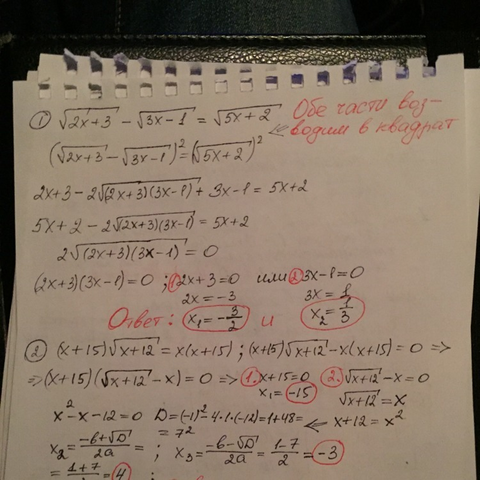 ① √(2x+3) − √(3x−1) = √(5x+2)
Обе части воз-
водим в квадрат
(√(2x+3) − √(3x−1))² = (√(5x+2))²
2x+3−2√((2x+3)(3x−1)) + 3x−1 = 5x+2
5x+2−2√((2x+3)(3x−1)) = 5x+2
2√((2x+3)(3x−1)) = 0
(2x+3)(3x−1)=0 ; ① 2x+3=0 или ② 3x−1=0
2x=−3 3x=1
Ответ: x₁=−3/2 и x₂=1/3
② (x+15)√(x+12) = x(x+15) ; (x+15)√(x+12) − x(x+15) = 0 =>
=> (x+15)(√(x+12) − x) = 0 => 1. x+15=0 2. √(x+12) − x=0
x₁=−15 √(x+12) = x
x²−x−12=0 D=(−1)²−4·1·(−12)=1+48= ← x+12=x²
=7²
x₂=(−b+√D)/2a = ; x₃=(−b−√D)/2a = (1−7)/2 = −3
= (1+7)/2 = 4 ;